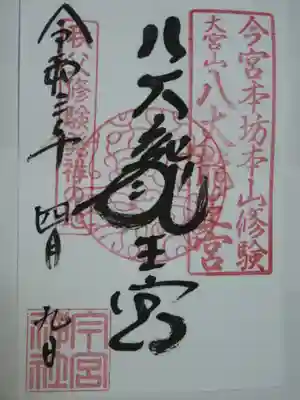 今宮本坊本山修験
大宮山
八大龍王宮
八大龍王宮
秩父修験
令和三年四月九日
今宮神社